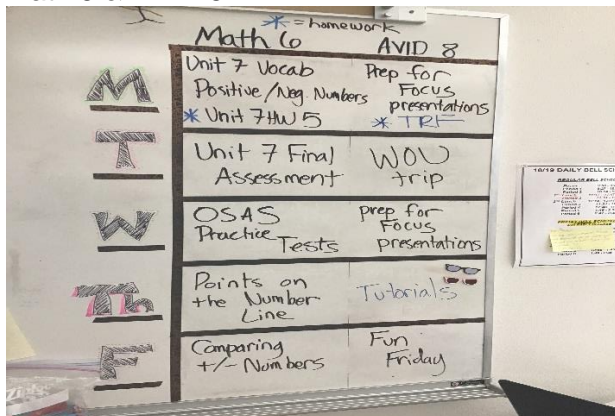 * = homework
Math 6 AVID 8
M
Unit 7 Vocab
Positive/Neg Numbers
* Unit 7 HW 5
Prep for
Focus
presentations
* TRF
T
Unit 7 Final
Assessment
WOU
trip
W
OSAS
Practice
Tests
Prep for
Focus
presentations
Th
Points on
the Number
Line
Tutorials
F
Comparing
+/- Numbers
Fun
Friday
Ziploc
18/19 DAILY BELL